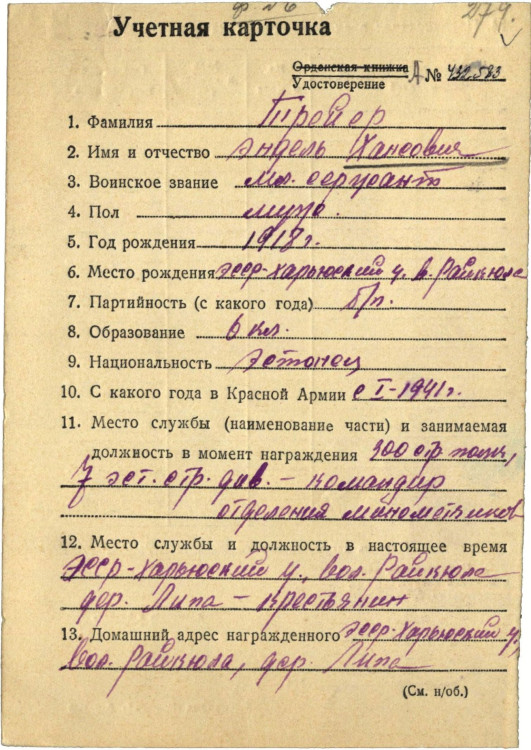 ф. № 6
279.
Учетная карточка
Орденская книжка
Удостоверение А № 432.583
1. Фамилия Тройер
2. Имя и отчество Эндель Хансович
3. Воинское звание мл. сержант
4. Пол муж.
5. Год рождения 1918 г.
6. Место рождения ЭССР-Харьюский у. в. Райкюла
7. Партийность (с какого года) б/п.
8. Образование 6 кл.
9. Национальность Эстонец
10. С какого года в Красной Армии с I-1941 г.
11. Место службы (наименование части) и занимаемая
должность в момент награждения 300 стр. полк,
7 эст. стр. див. – командир
отделения минометчиков
12. Место службы и должность в настоящее время
ЭССР-Харьюский у., вол. Райкюла
дер. Липа – крестьянин
13. Домашний адрес награжденного ЭССР-Харьюский у.,
вол. Райкюла, дер. Липа
(См. н/об.)